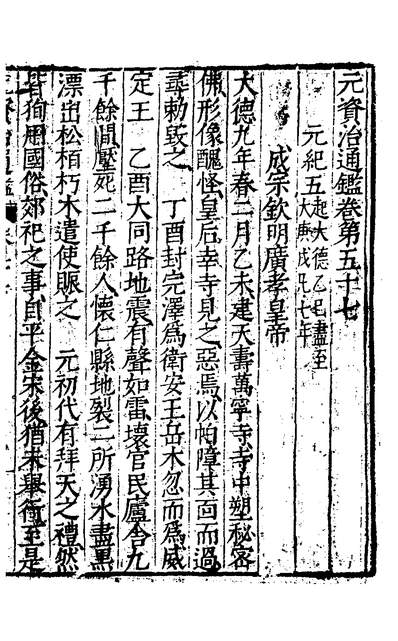 元資治通鑑卷第五十七
元紀五起大德乙巳盡至
大庚戌凡七年
成宗欽明廣孝皇帝
大德九年春二月乙未建天壽萬寧寺寺中塑秘密
佛形像醜怪皇后幸寺見之惡焉以帕障其面而過
尋勅毀之 丁酉封完澤為衛安王岳木忽而為威
定王 乙酉大同路地震有聲如雷壞官民廬舍九
千餘間壓死二千餘人懷仁縣地裂二所湧水盡黑
漂出松栢朽木遣使賑之 元初代有拜天之禮然
皆狥用國俗郊祀之事自平金宋後猶未舉衛至是